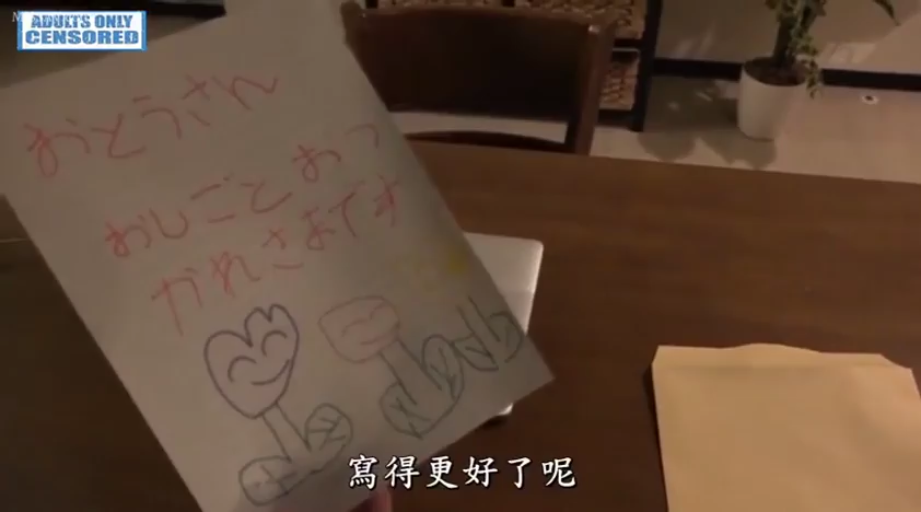 ADULTS ONLY
CENSORED
おとうさん
おしごとおつ
かれさまです
寫得更好了呢